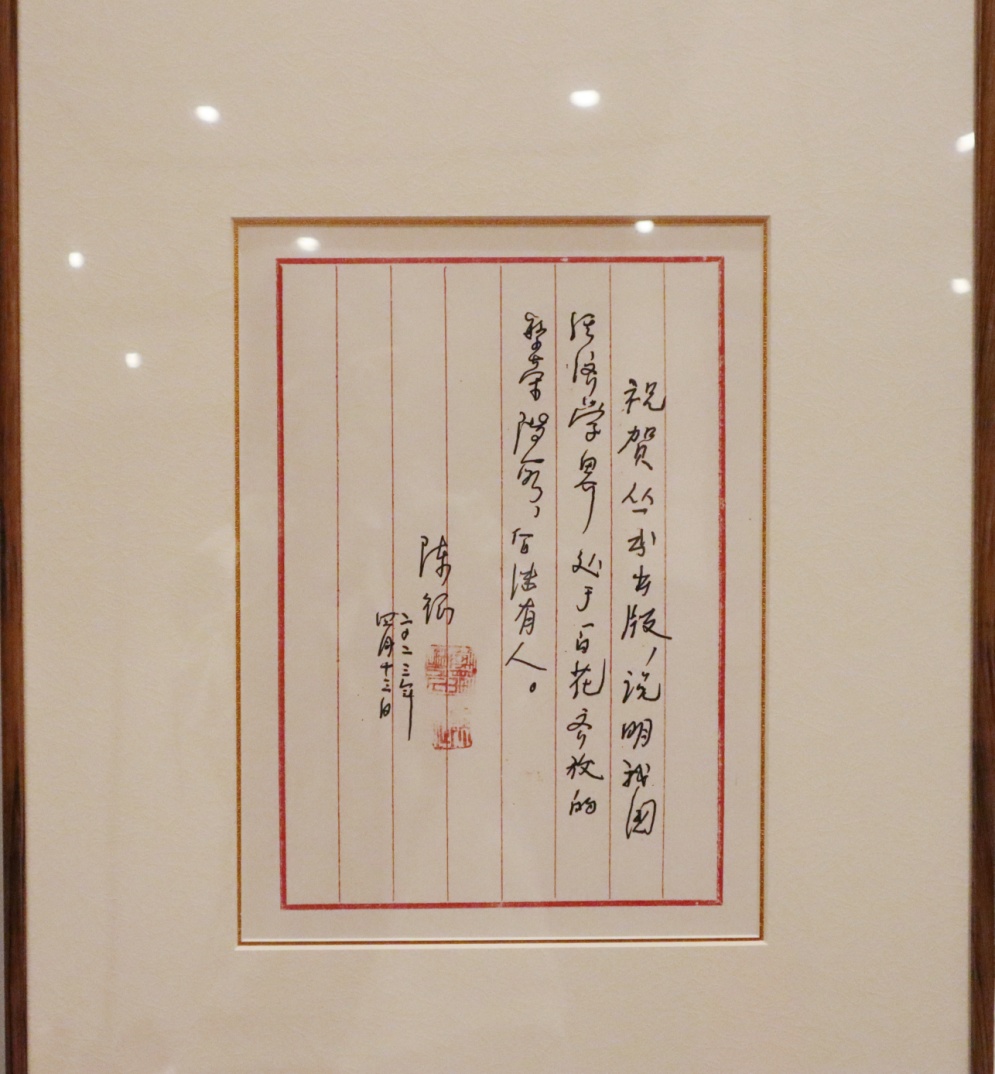 祝贺丛书出版，说明我国
经济学界处于百花齐放的
繁荣阶段，后继有人。
陈
二〇二三年
四月十三日